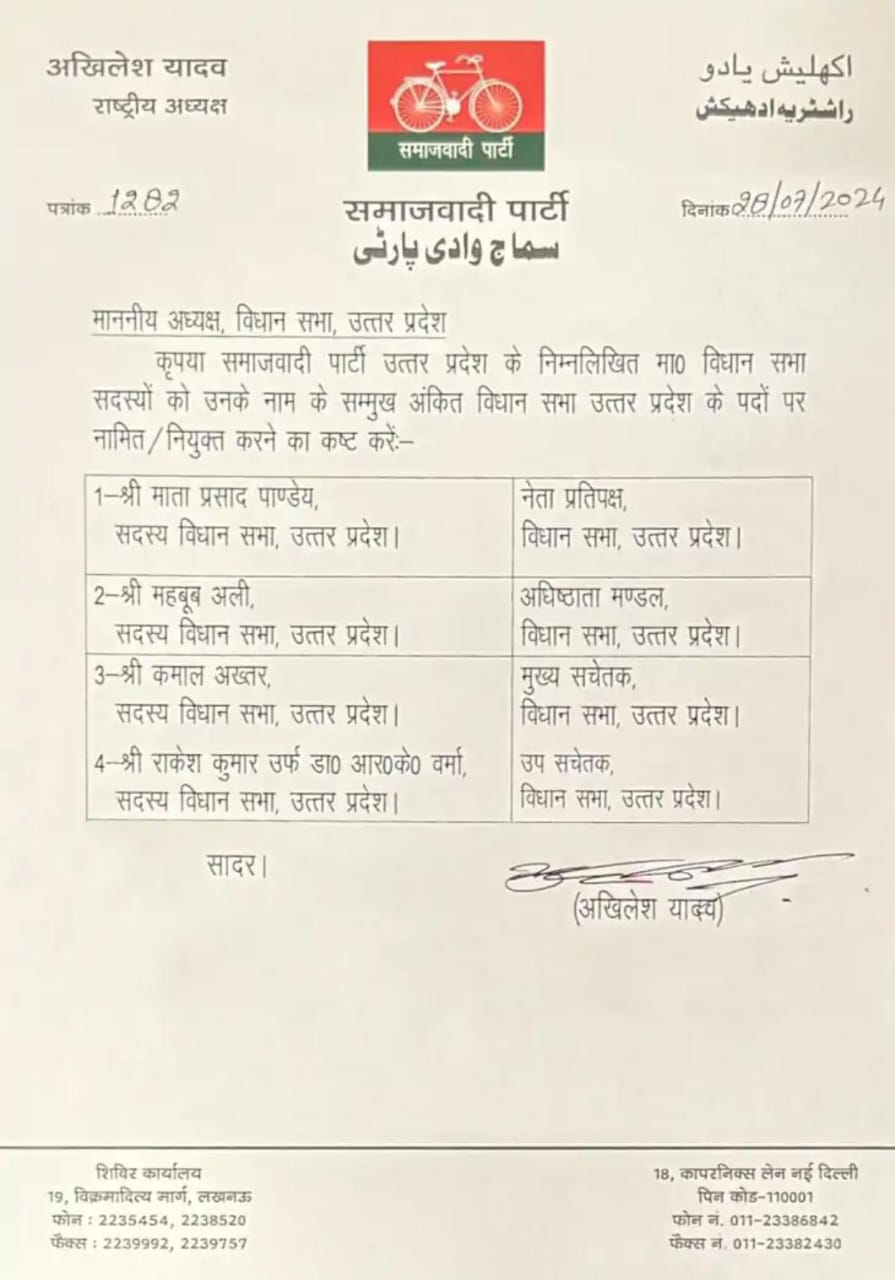 अखिलेश यादव
राष्ट्रीय अध्यक्ष
समाजवादी पार्टी
اکھلیش یادو
راشٹریہ ادھیکش
पत्रांक 1282
समाजवादी पार्टी
سماج وادی پارٹی
दिनांक 28/07/2024
माननीय अध्यक्ष, विधान सभा, उत्तर प्रदेश
कृपया समाजवादी पार्टी उत्तर प्रदेश के निम्नलिखित मा0 विधान सभा
सदस्यों को उनके नाम के सम्मुख अंकित विधान सभा उत्तर प्रदेश के पदों पर
नामित/नियुक्त करने का कष्ट करें:–
1–श्री माता प्रसाद पाण्डेय,
सदस्य विधान सभा, उत्तर प्रदेश।
नेता प्रतिपक्ष,
विधान सभा, उत्तर प्रदेश।
2–श्री महबूब अली,
सदस्य विधान सभा, उत्तर प्रदेश।
अधिष्ठाता मण्डल,
विधान सभा, उत्तर प्रदेश।
3–श्री कमाल अख्तर,
सदस्य विधान सभा, उत्तर प्रदेश।
मुख्य सचेतक,
विधान सभा, उत्तर प्रदेश।
4–श्री राकेश कुमार उर्फ डा0 आर0के0 वर्मा,
सदस्य विधान सभा, उत्तर प्रदेश।
उप सचेतक,
विधान सभा, उत्तर प्रदेश।
सादर।
(अखिलेश यादव)
शिविर कार्यालय
19, विक्रमादित्य मार्ग, लखनऊ
फोन : 2235454, 2238520
फैक्स : 2239992, 2239757
18, कापरनिक्स लेन नई दिल्ली
पिन कोड–110001
फोन नं. 011-23386842
फैक्स नं. 011-23382430